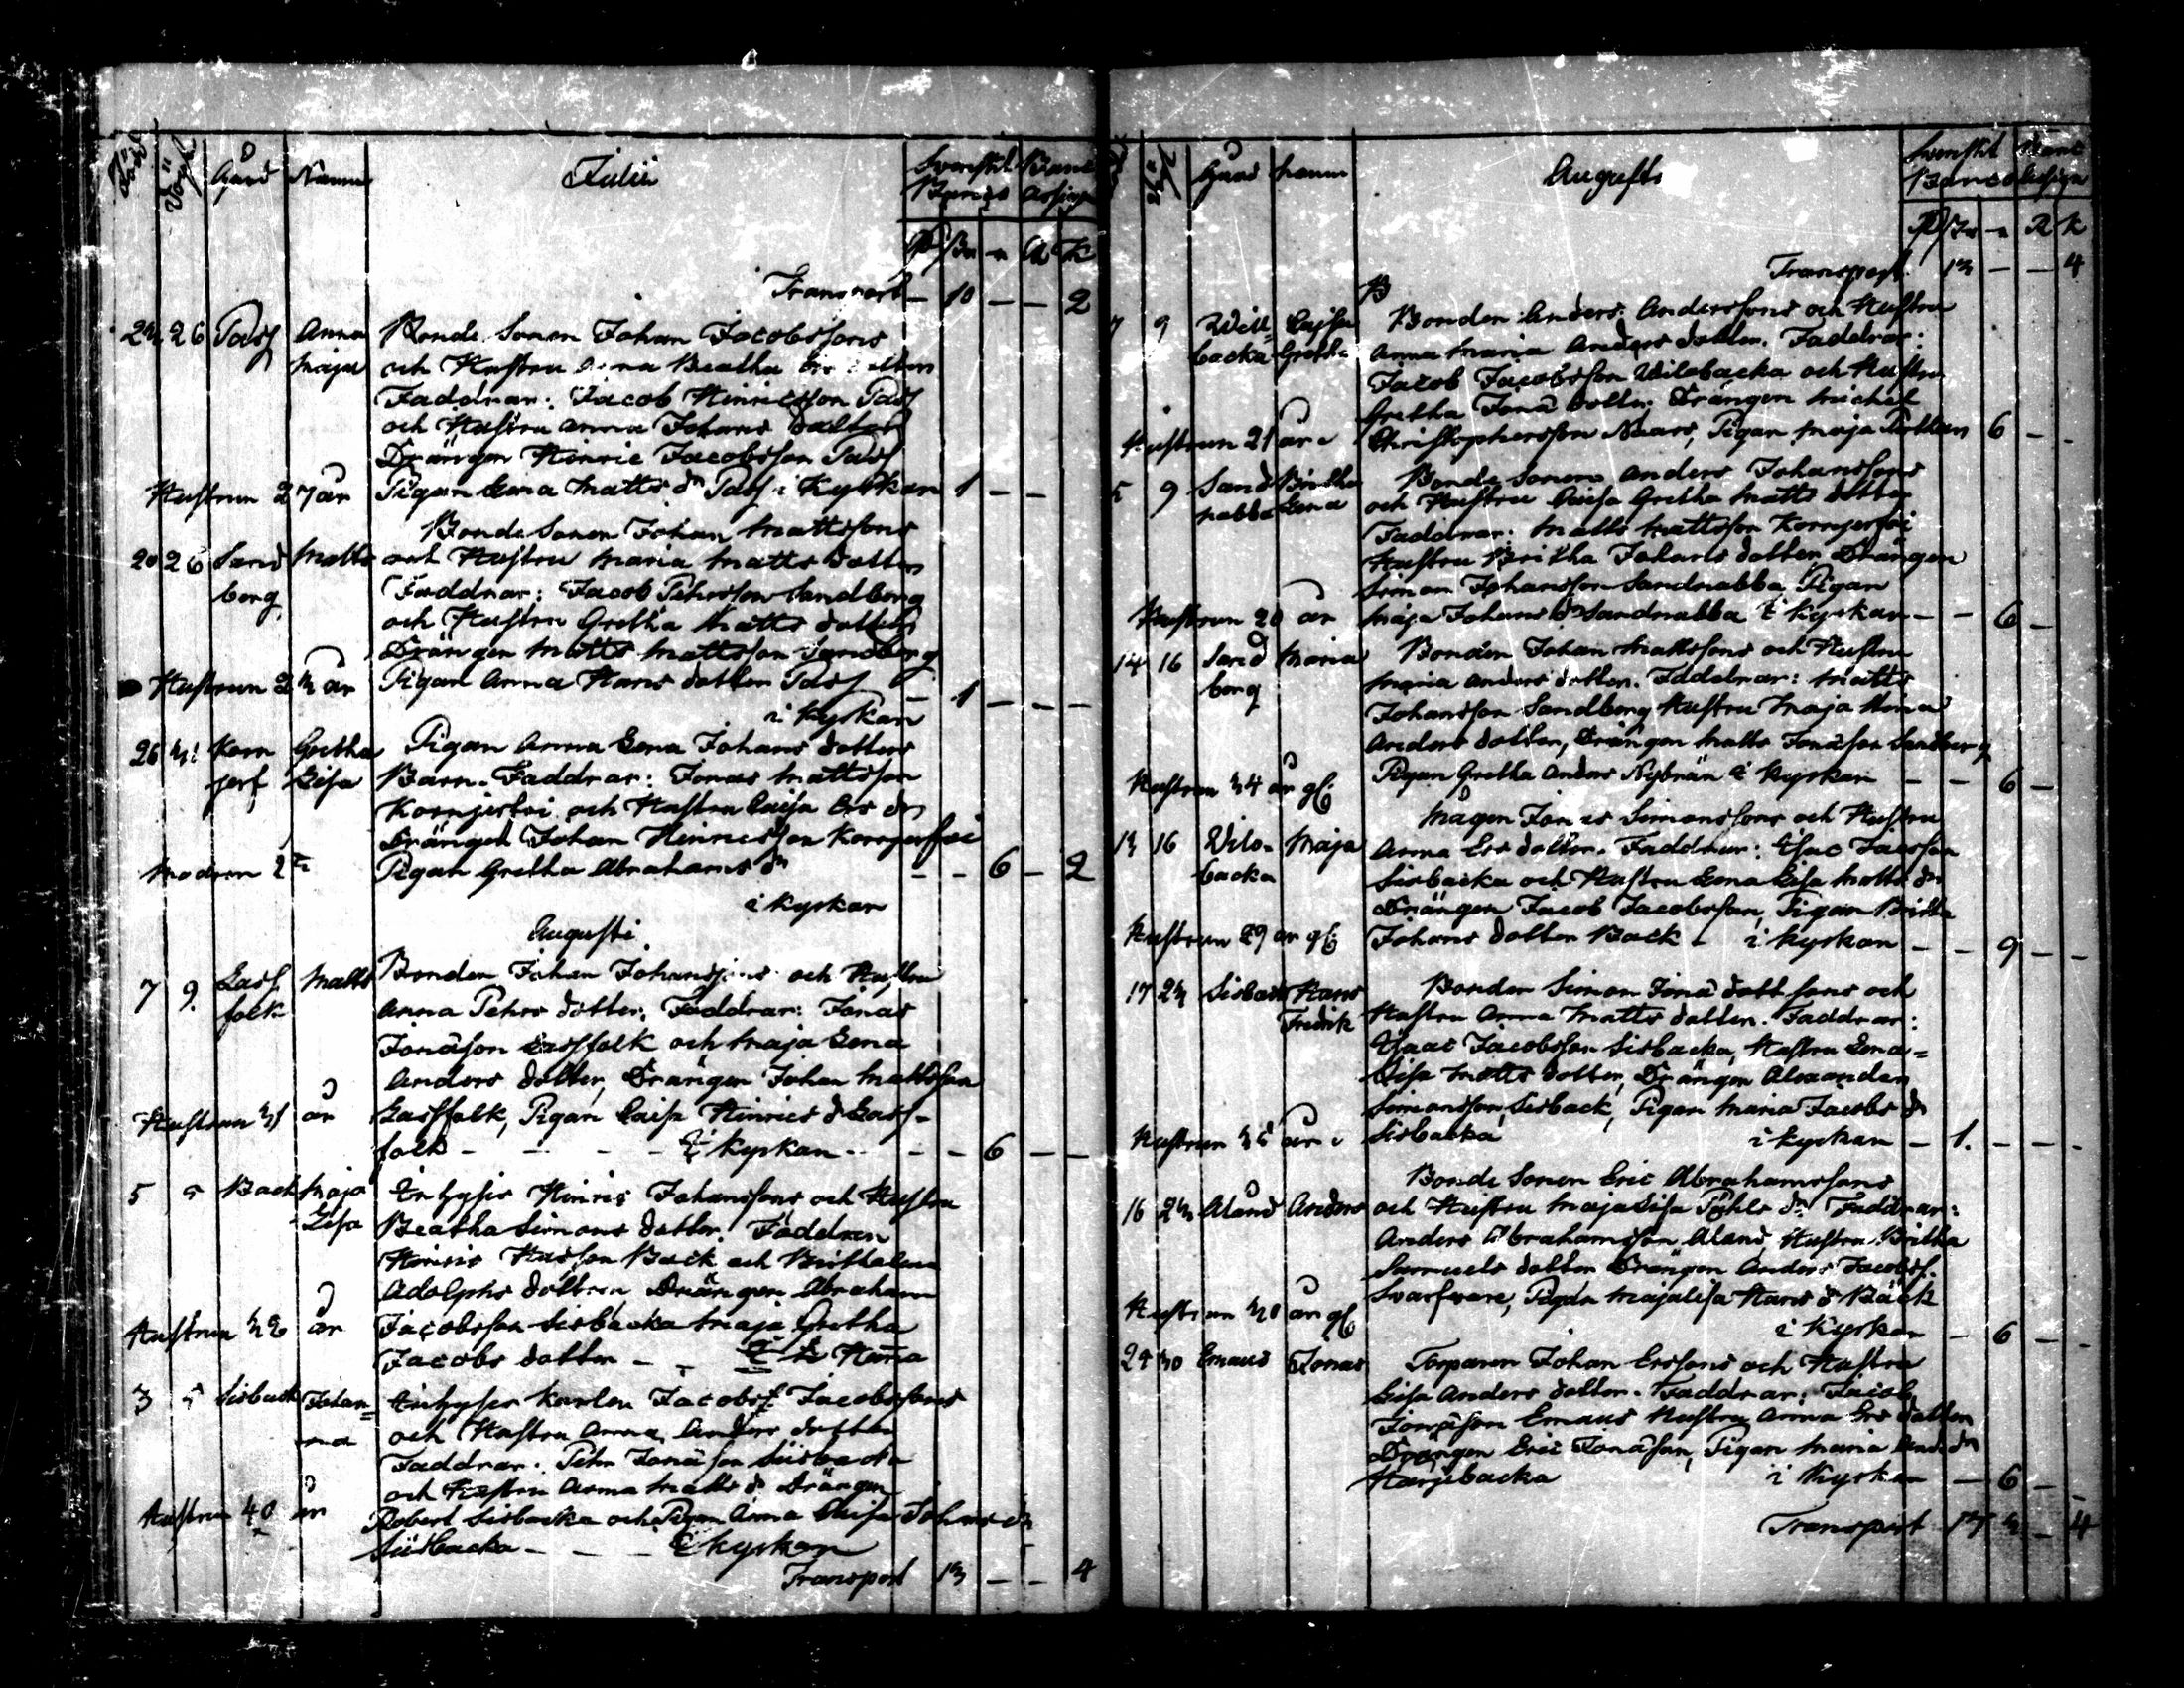 Född Döpt Gård Namn Julii Svenskt Banco Banc Assign
Transport - 10 - - 2
26 Pass Anna Bonde Sonen Johan Jacobssons
Maja och Hustru Anna Beatha Ers dotters
Faddrar: Jacob Hinricsson Pass
och Hustru Anna Johans dotter
Drängen Hinric Jacobsson Pass
Hustrun 27 år Pigan Lena Matts dr Pass i Kyrkan 1 - -
Bonde Sonen Johan Mattssons
20 26 Sand Matts och Hustru Maria Matts dotters
berg Faddrar: Jacob Pehrsson Sandberg
och Hustru Gretha Matts dotter
Drängen Matts Mattsson Sandberg
Hustrun 23 år Pigan Anna Hans dotter Pass - 1 - - -
i Kyrkan
26 31 Korn Gretha Pigan Anna Lena Johans dotters
jerf Lisa Barn. Faddrar: Jonas Mattsson
Kornjerfvi och Hustru Caisa Ers dr
Drängen Johan Hinricsson Kornjerfvi
Modren Pigan Gretha Abrahams dr - - 6 - 2
i Kyrkan
Augusti
7 9 Lass Matts Bonden Johan Johanssons och Hustru
folk Anna Pehrs dotter. Faddrar: Jonas
Jonasson Lassfolk och Maja Lena
Anders dotter, Drängen Johan Mattsson
Hustrun 31 år Lassfolk, Pigan Caisa Hinrics d Lass-
folk - - - - i Kyrkan - - - 6 - -
5 Back Maja Inhyses Hinric Johanssons och Hustru
Lisa Beatha Simons dotter. Faddrar
Hinric Hansson Back och Brithalena
Adolphs dotter Drängen Abraham
Hustrun år Jacobsson Sisbacka Maja Gretha
Jacobs dotter -
3 Sisback Johan= Inhyses Karlen Jacob Jacobssons
na och Hustru Anna Anders dotter
Faddrar: Pehr Jonasson Sisbacka
och Hustru Anna Matts d Drängen
Hustrun 40 år Robert Sisbacka och Pigan Anna Caisa Johans dr
Sisbacka - - - i Kyrkan
Transport 13 - - 4
Gård Namn Augusti Svenskt Banco Banc Assign
Transport 13 - - 4
7 9 Will= Cajsa Bonden Anders Anderssons och Hustru
backa Gretha Anna Maria Anders dotter. Faddrar:
Jacob Jacobsson Wilobacka och Hustru
Gretha Jona dotter, Drängen Michel
Hustrun 21 år Christophersson Naars, Pigan Maja 6 - -
5 9 Sand Britha Bonde Sonens Anders Johanssons
nabba Lena och Hustru Caisa Gretha Matts dotter
Faddrar: Matts Mattsson Kornjerfvi
Hustru Britha Johans dotter Drängen
Simon Johansson Sandnabba Pigan
Hustrun 20 år Maja Johans dr Sandnabba i Kyrkan - - 6 -
14 16 Sand Maria Bonden Johan Mattssons och Hustru
berg Maria Anders dotter. Faddrar: Matts
Johansson Sandberg Hustru Maja Stina
Anders dotter, Drängen Matts Jonasson Sandberg
Hustrun 34 år gl: Pigan Gretha Anders Nybrän i Kyrkan - - 6 -
Mågen Jonas Simonssons och Hustru
13 16 Wilo- Maja Anna Ers dotter. Faddrar: Isac
backa Sisbacka och Hustru Lena Lisa Matts dr
Drängen Jacob Jacobsson, Pigan Britha
Hustrun 29 år gl: Johans dotter Back - i Kyrkan - - 9 - -
17 23 Sisback Hans Bonden Simon Jona dott sons och
Fredrik Hustru Anna Matts dotter. Faddrar:
Isaac Jacobsson Sisbacka, Hustru Lena=
Lisa Matts dotter, Drängen Alexander
Simonsson Sisback, Pigan Maria Jacobs d
Hustrun 35 år Sisbacka i Kyrkan - 1. - - -
Bonde Sonen Eric Abrahamssons
16 23 Åland Anders och Hustru Maja Lisa Pehrs dr. Faddrar:
Anders Abrahamsson Åland, Hustru Britha
Samuels dotter Drängen Anders Jacobss.
Hustrun 30 år gl Svarfvare, Pigan Majalisa Hans d Bäck
i Kyrkan - 6 - -
24 30 Emaus Jonas Torparen Johan Erssons och Hustru
Lisa Anders dotter. Faddrar: Jacob
Jonasson Emaus Hustru Anna Ers dotter
Drängen Eric Jonasson, Pigan Maria And. dr
Harjebacka i Kyrkan - 6 - -
Transport 17 3 - 4